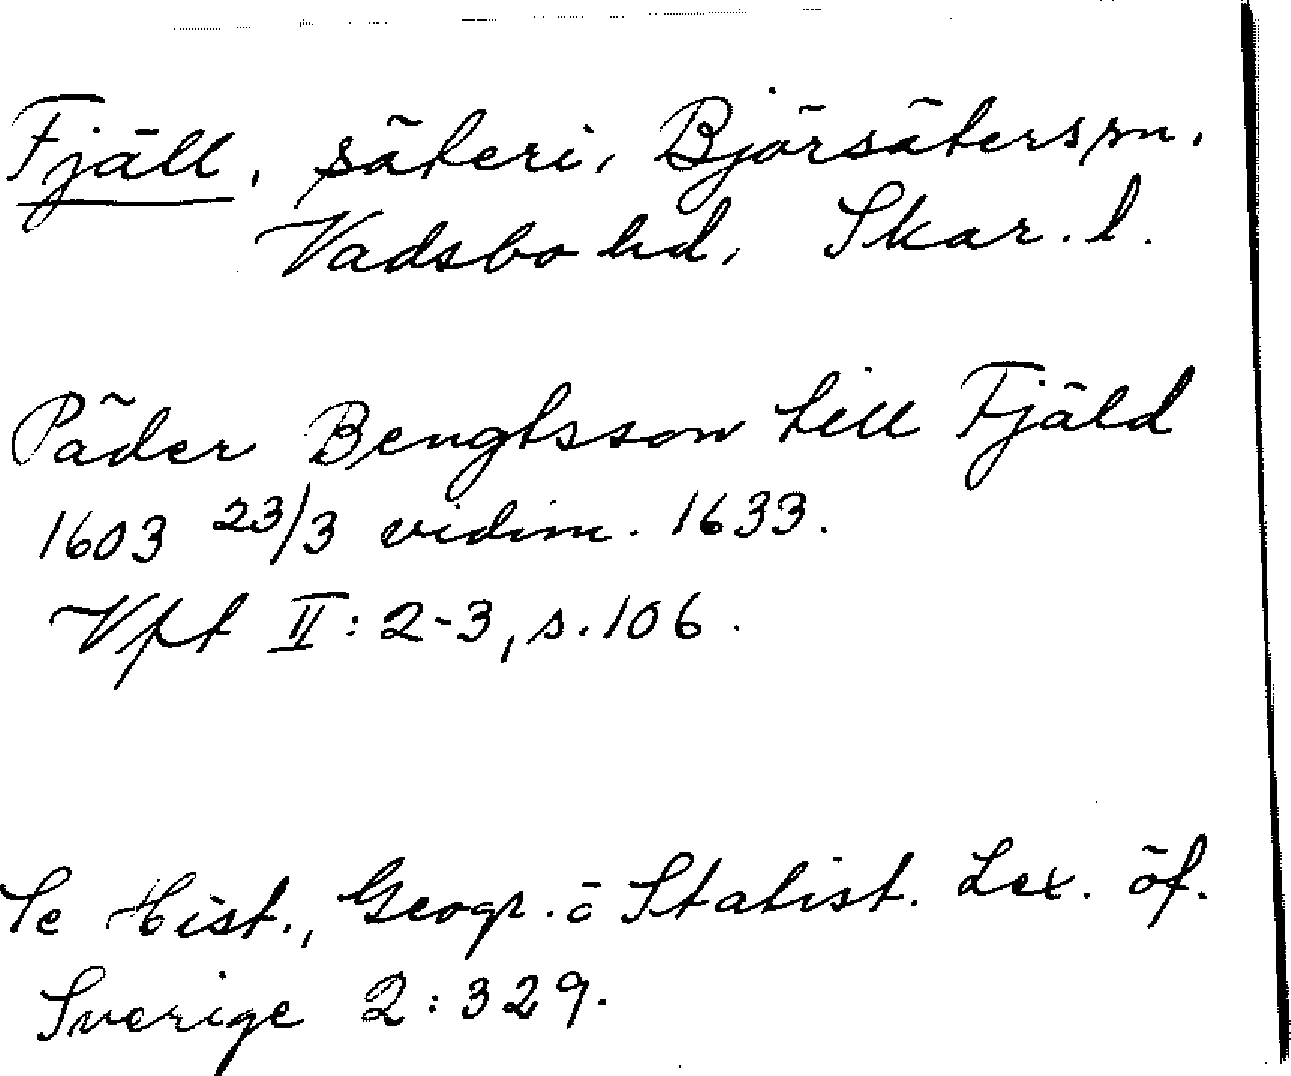 Fjäll, säteri, Björsäterssn.
Vadsbo hd, Skar. l.
Päder Bengtsson till Fjäld
1603 23/3 vidim. 1633.
Vpt II: 2-3, s. 106.
Se Hist., Geogr. o Statist. Lex. öf.
Sverige 2: 329.